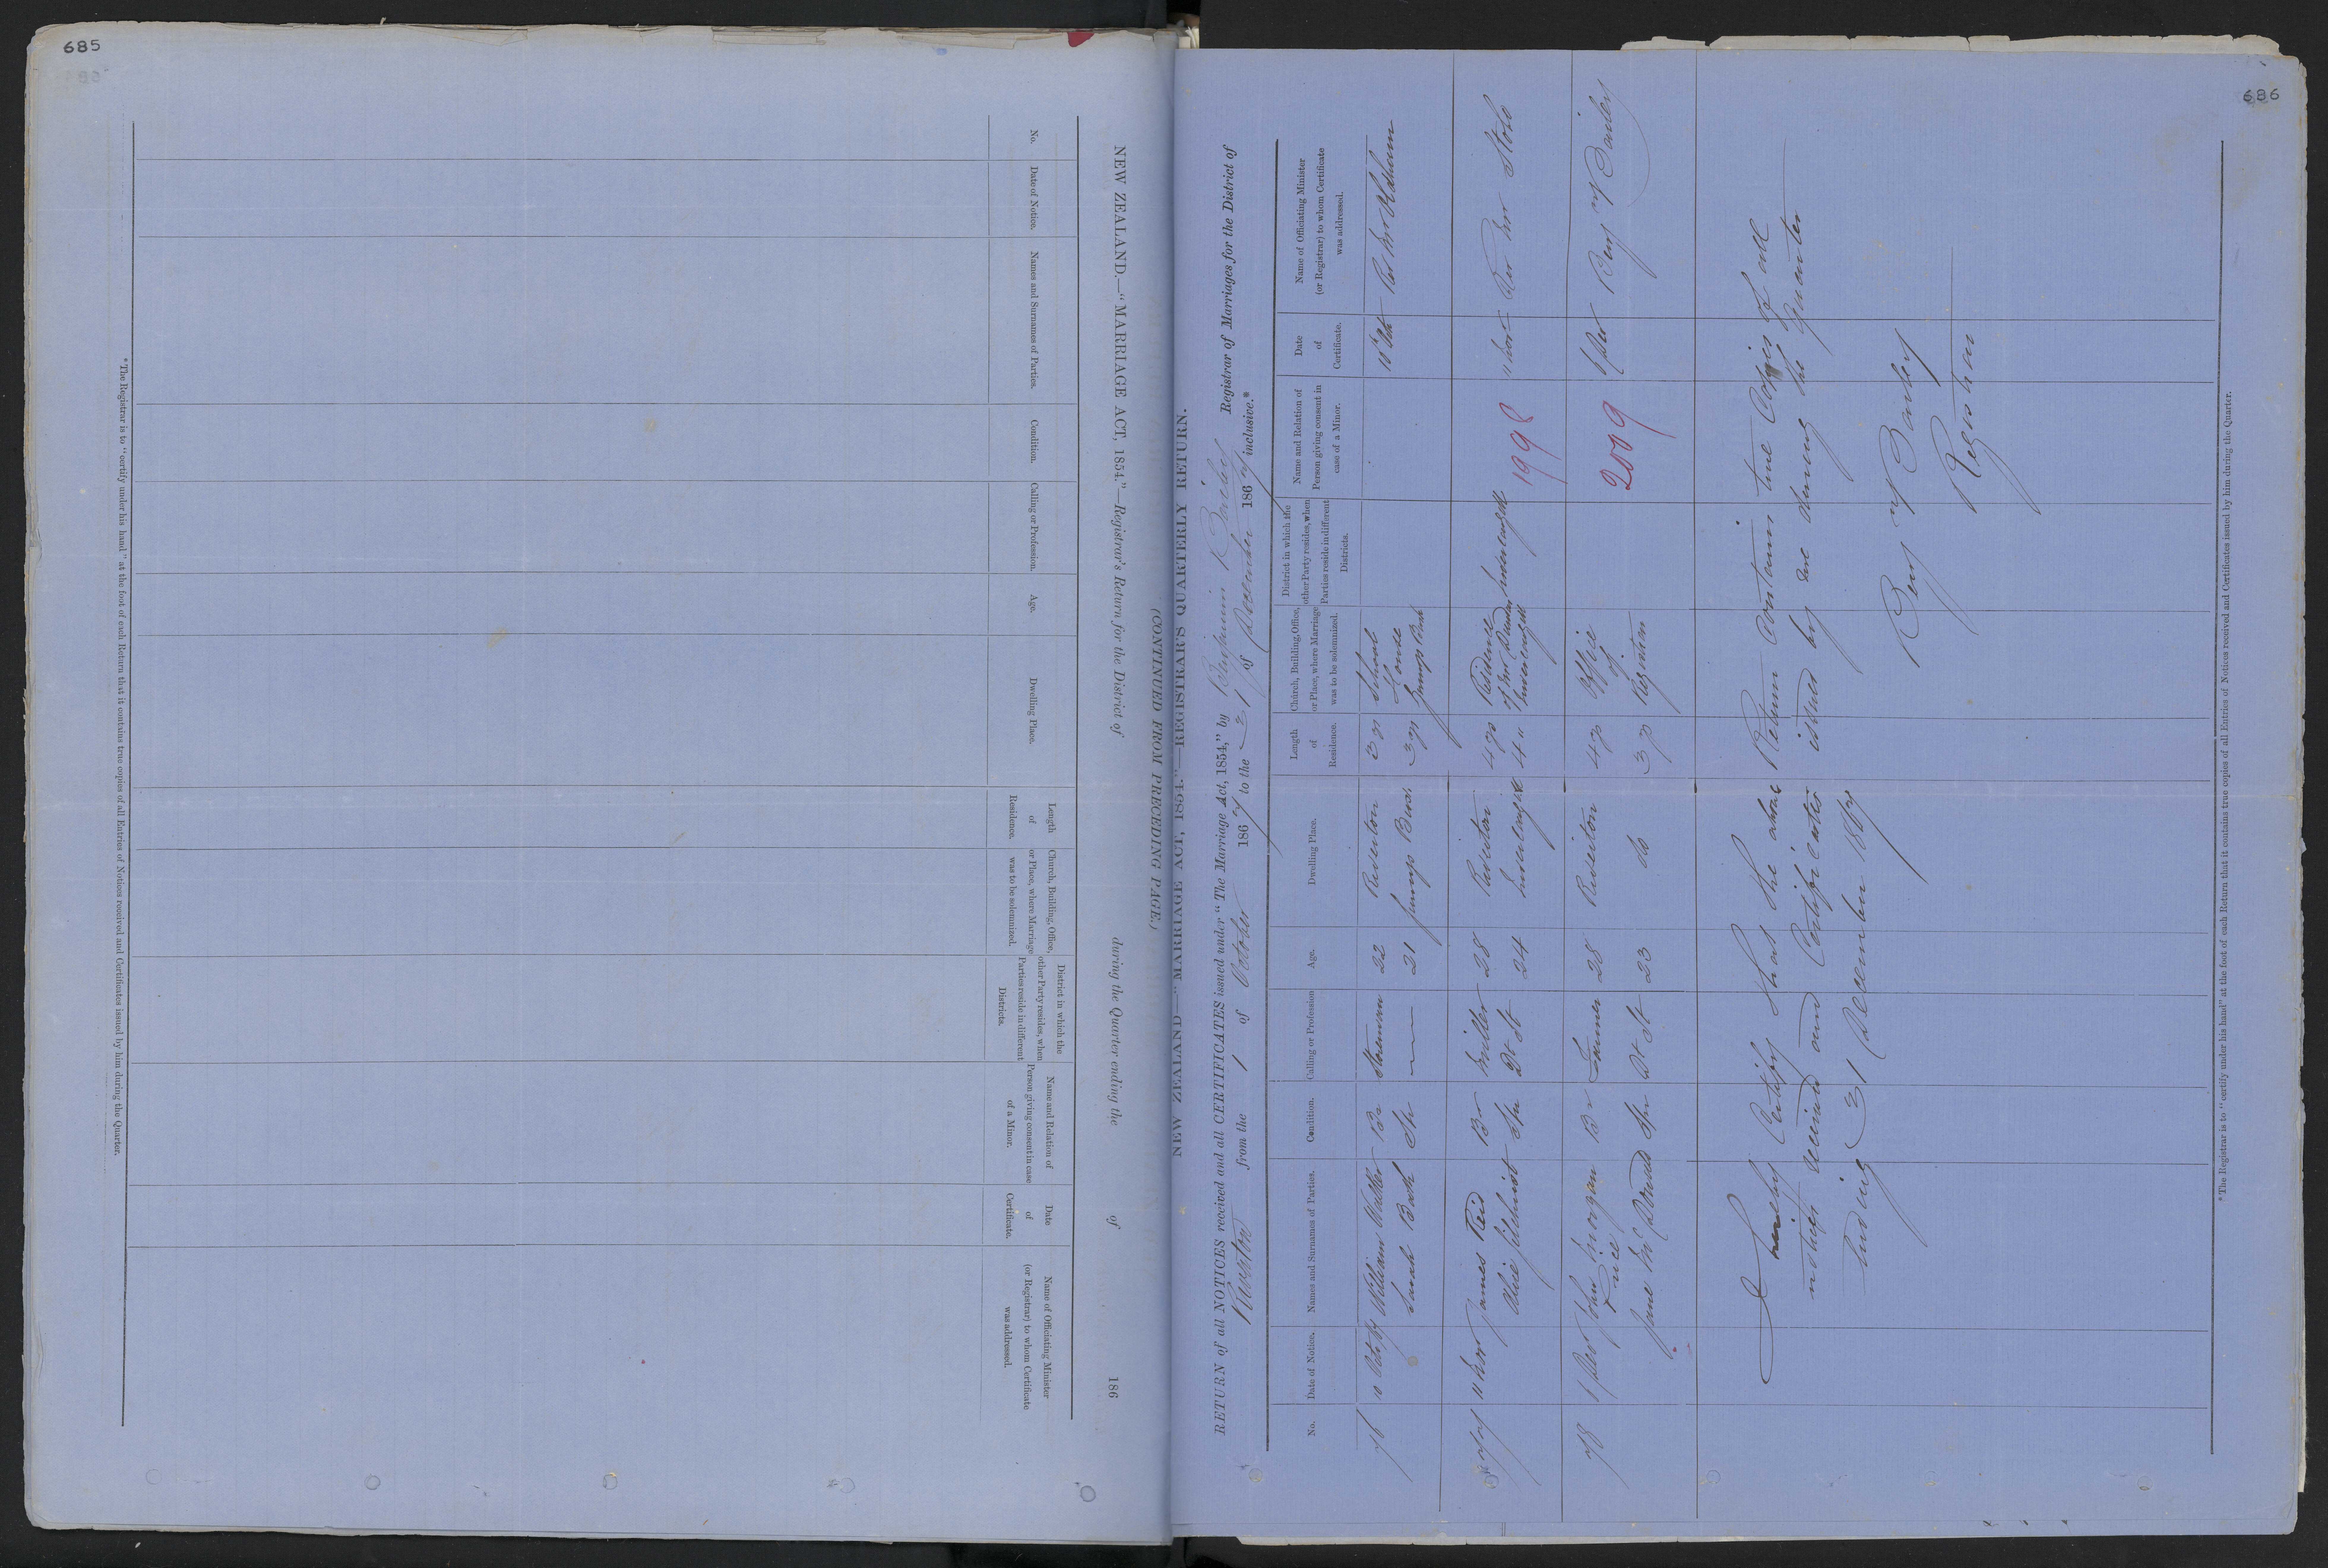 685
NEW ZEALAND.—"MARRIAGE ACT, 1854."—Registrar's Return for the District of during the Quarter ending the of 186
(CONTINUED FROM PRECEDING PAGE.)
No.
Date of Notice.
Names and Surnames of Parties.
Condition.
Calling or Profession.
Age.
Dwelling Place.
Length
of
Residence.
Church, Building, Office,
or Place, where Marriage
was to be solemnized.
District in which the
other Party resides, when
Parties reside in different
Districts.
Name and Relation of
Person giving consent in case
of a Minor.
Date
of
Certificate.
Name of Officiating Minister
(or Registrar) to whom Certificate
was addressed.
*The Registrar is to "certify under his hand" at the foot of each Return that it contains true copies of all Entries of Notices received and Certificates issued by him during the Quarter.
686
NEW ZEALAND—"MARRIAGE ACT, 1854."—REGISTRAR'S QUARTERLY RETURN.
RETURN of all NOTICES received and all CERTIFICATES issued under "The Marriage Act, 1854," by Benjamin Bailey Registrar of Marriages for the District of
Riverton from the 1 of October 1867 to the 31 of December 1867 inclusive.*
No.
Date of Notice.
Names and Surnames of Parties.
Condition.
Calling or Profession
Age.
Dwelling Place.
Length
of
Residence.
Church, Building, Office,
or Place, where Marriage
was to be solemnized.
District in which the
other Party resides, when
Parties reside in different
Districts.
Name and Relation of
Person giving consent in
case of a Minor.
Date
of
Certificate.
Name of Officiating Minister
(or Registrar) to whom Certificate
was addressed.
76 10 Oct 67 William Walker Br 22 Riverton 3 ys School 10 Oct Rev Mr Oldham
Sarah Bath Sp — 21 Jumps Bush 3 ys House
Jumps Bush
77 11 Nov James Reid Br Miller 28 Riverton 4 ys Residence 11 Nov Rev Mr Stobo
Alice Gilchrist Sp Dt St 24 Invercargill 4 " of Mr Invercargill
Invercargill
1998
78 1 Dec John Morgan Br Farmer 28 Riverton 4 ys Office 1 Dec Benj Bailey
of
Jane McDonald Spr Dt St 23 do 3 ys Registrar
2009
I hereby Certify that the above Return Contains true Copies of all
notices received and Certificates issued by me during the Quarter
Ending 31 December 1867
Benj Bailey
Registrar
*The Registrar is to "certify under his hand" at the foot of each Return that it contains true copies of all Entries of Notices received and Certificates issued by him during the Quarter.